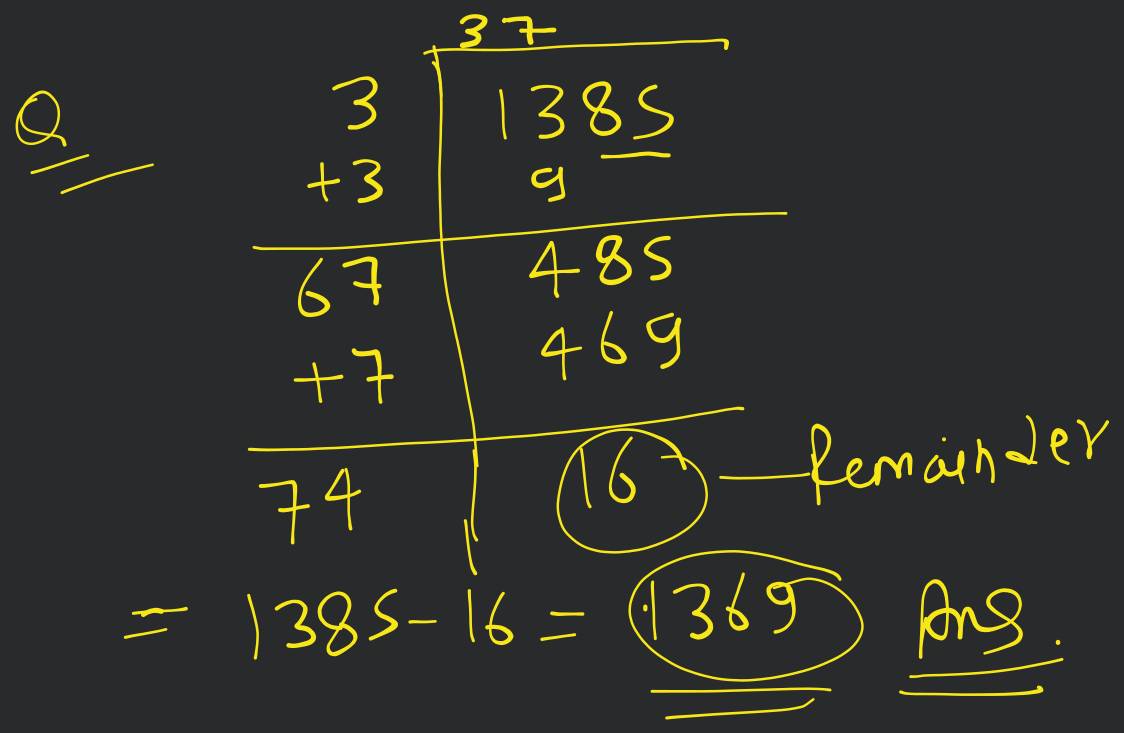 37
Q
3 1385
+3 9
67 485
+7 469
74 16 Remainder
= 1385 - 16 = 1369 Ans.